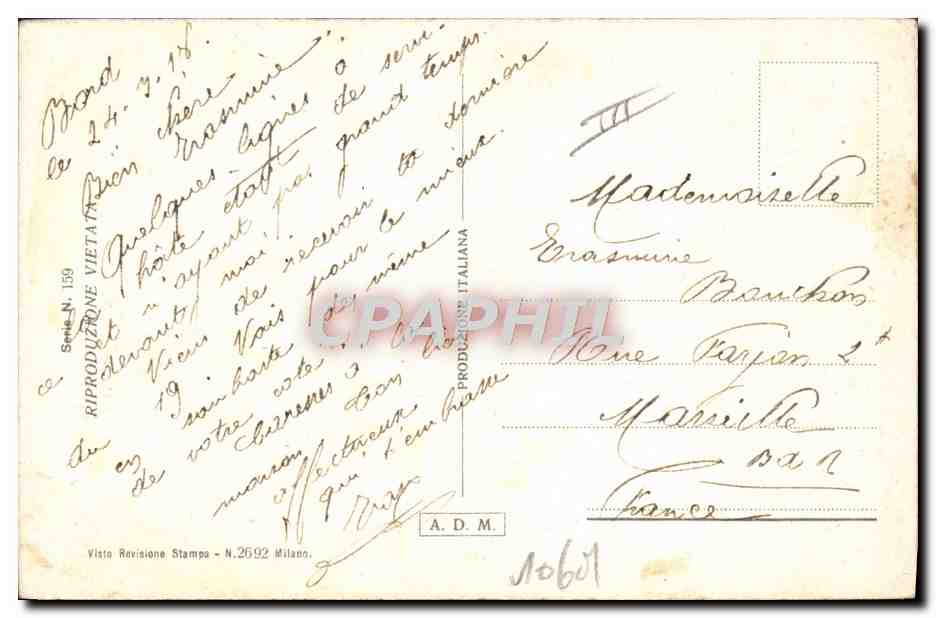 Bard
le 24.3.18
Bien chère
Erasmine.
Quelques lignes à
hâte étant de servi-
ce et n'ayant pas grand temps
devant moi.
Viens de recevoir ta dernière
du 19 Vais pour le mieux
en souhaite de même
de votre côté.
Caresses à la
maison Ton
affectueux
qui t'embrasse
Serie N. 159
RIPRODUZIONE VIETATA
PRODUZIONE ITALIANA
A. D. M.
Visto Revisione Stampa - N. 2692 Milano.
CPAPHIL
III
Mademoiselle
Erasmine
Bouchon
Rue Farjon 2
Marseille
B d R
France